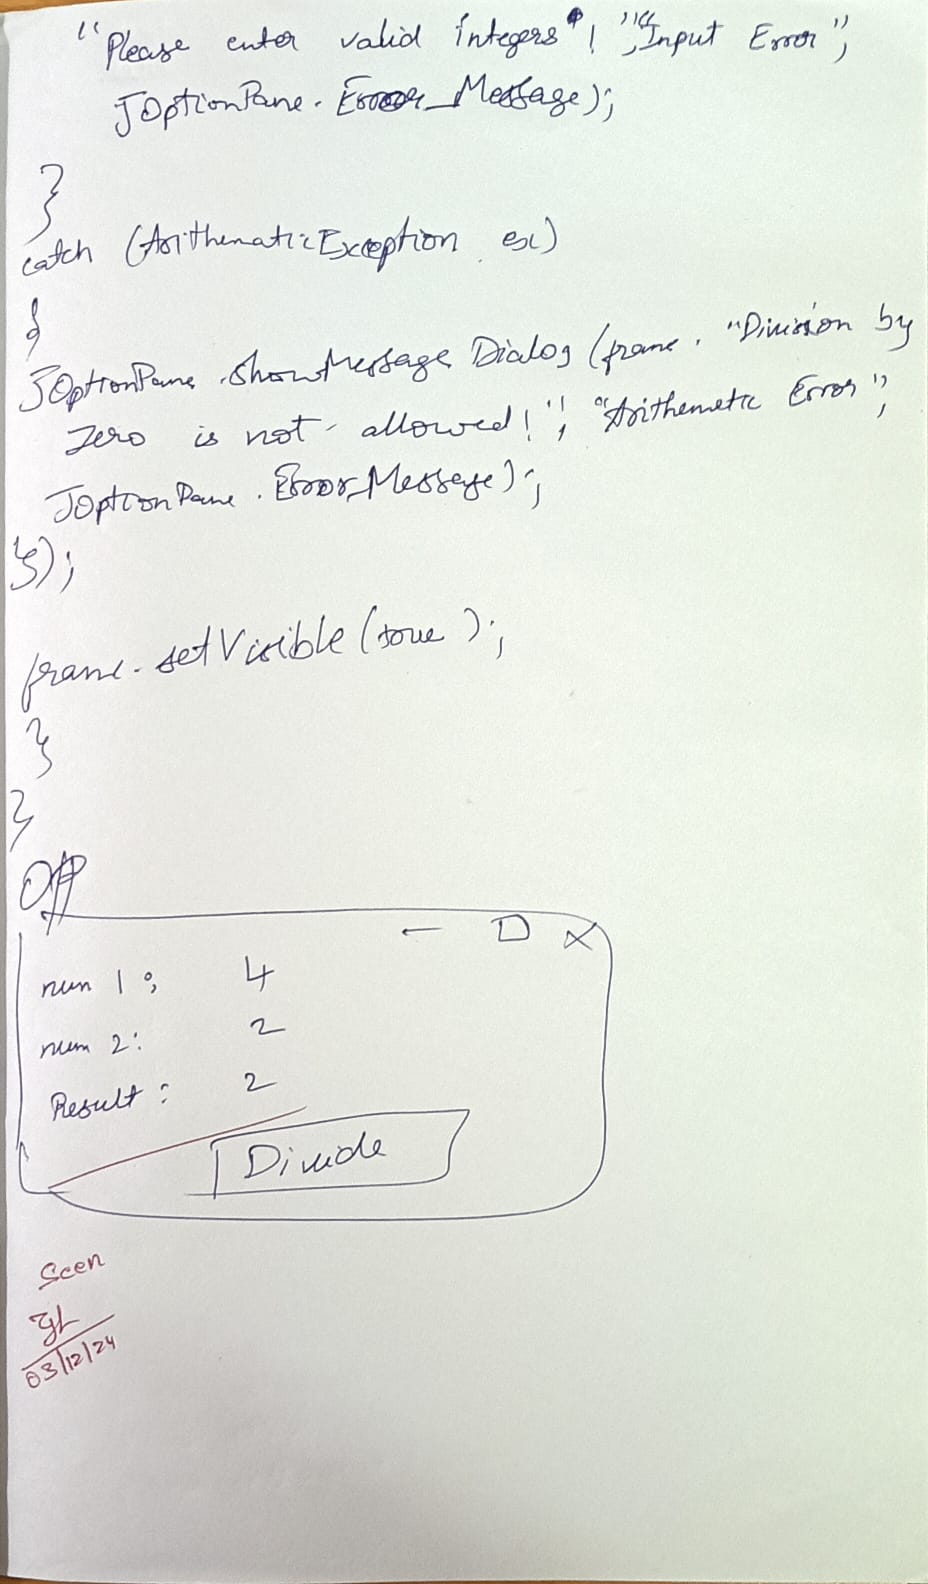 "Please enter valid integers"! ","Input Error",
JOptionPane. Error_Message);
}
catch (ArithematicException ex)
{
JOptionPane.ShowMessage Dialog (frame. "Division by
Zero is not allowed!", "Arithemetic Error",
JOptionPane. Error_Message);
});
frame.setVisible(true);
}
}
O/P
— D X
num 1: 4
num 2: 2
Result: 2
Divide
Seen
03/12/24